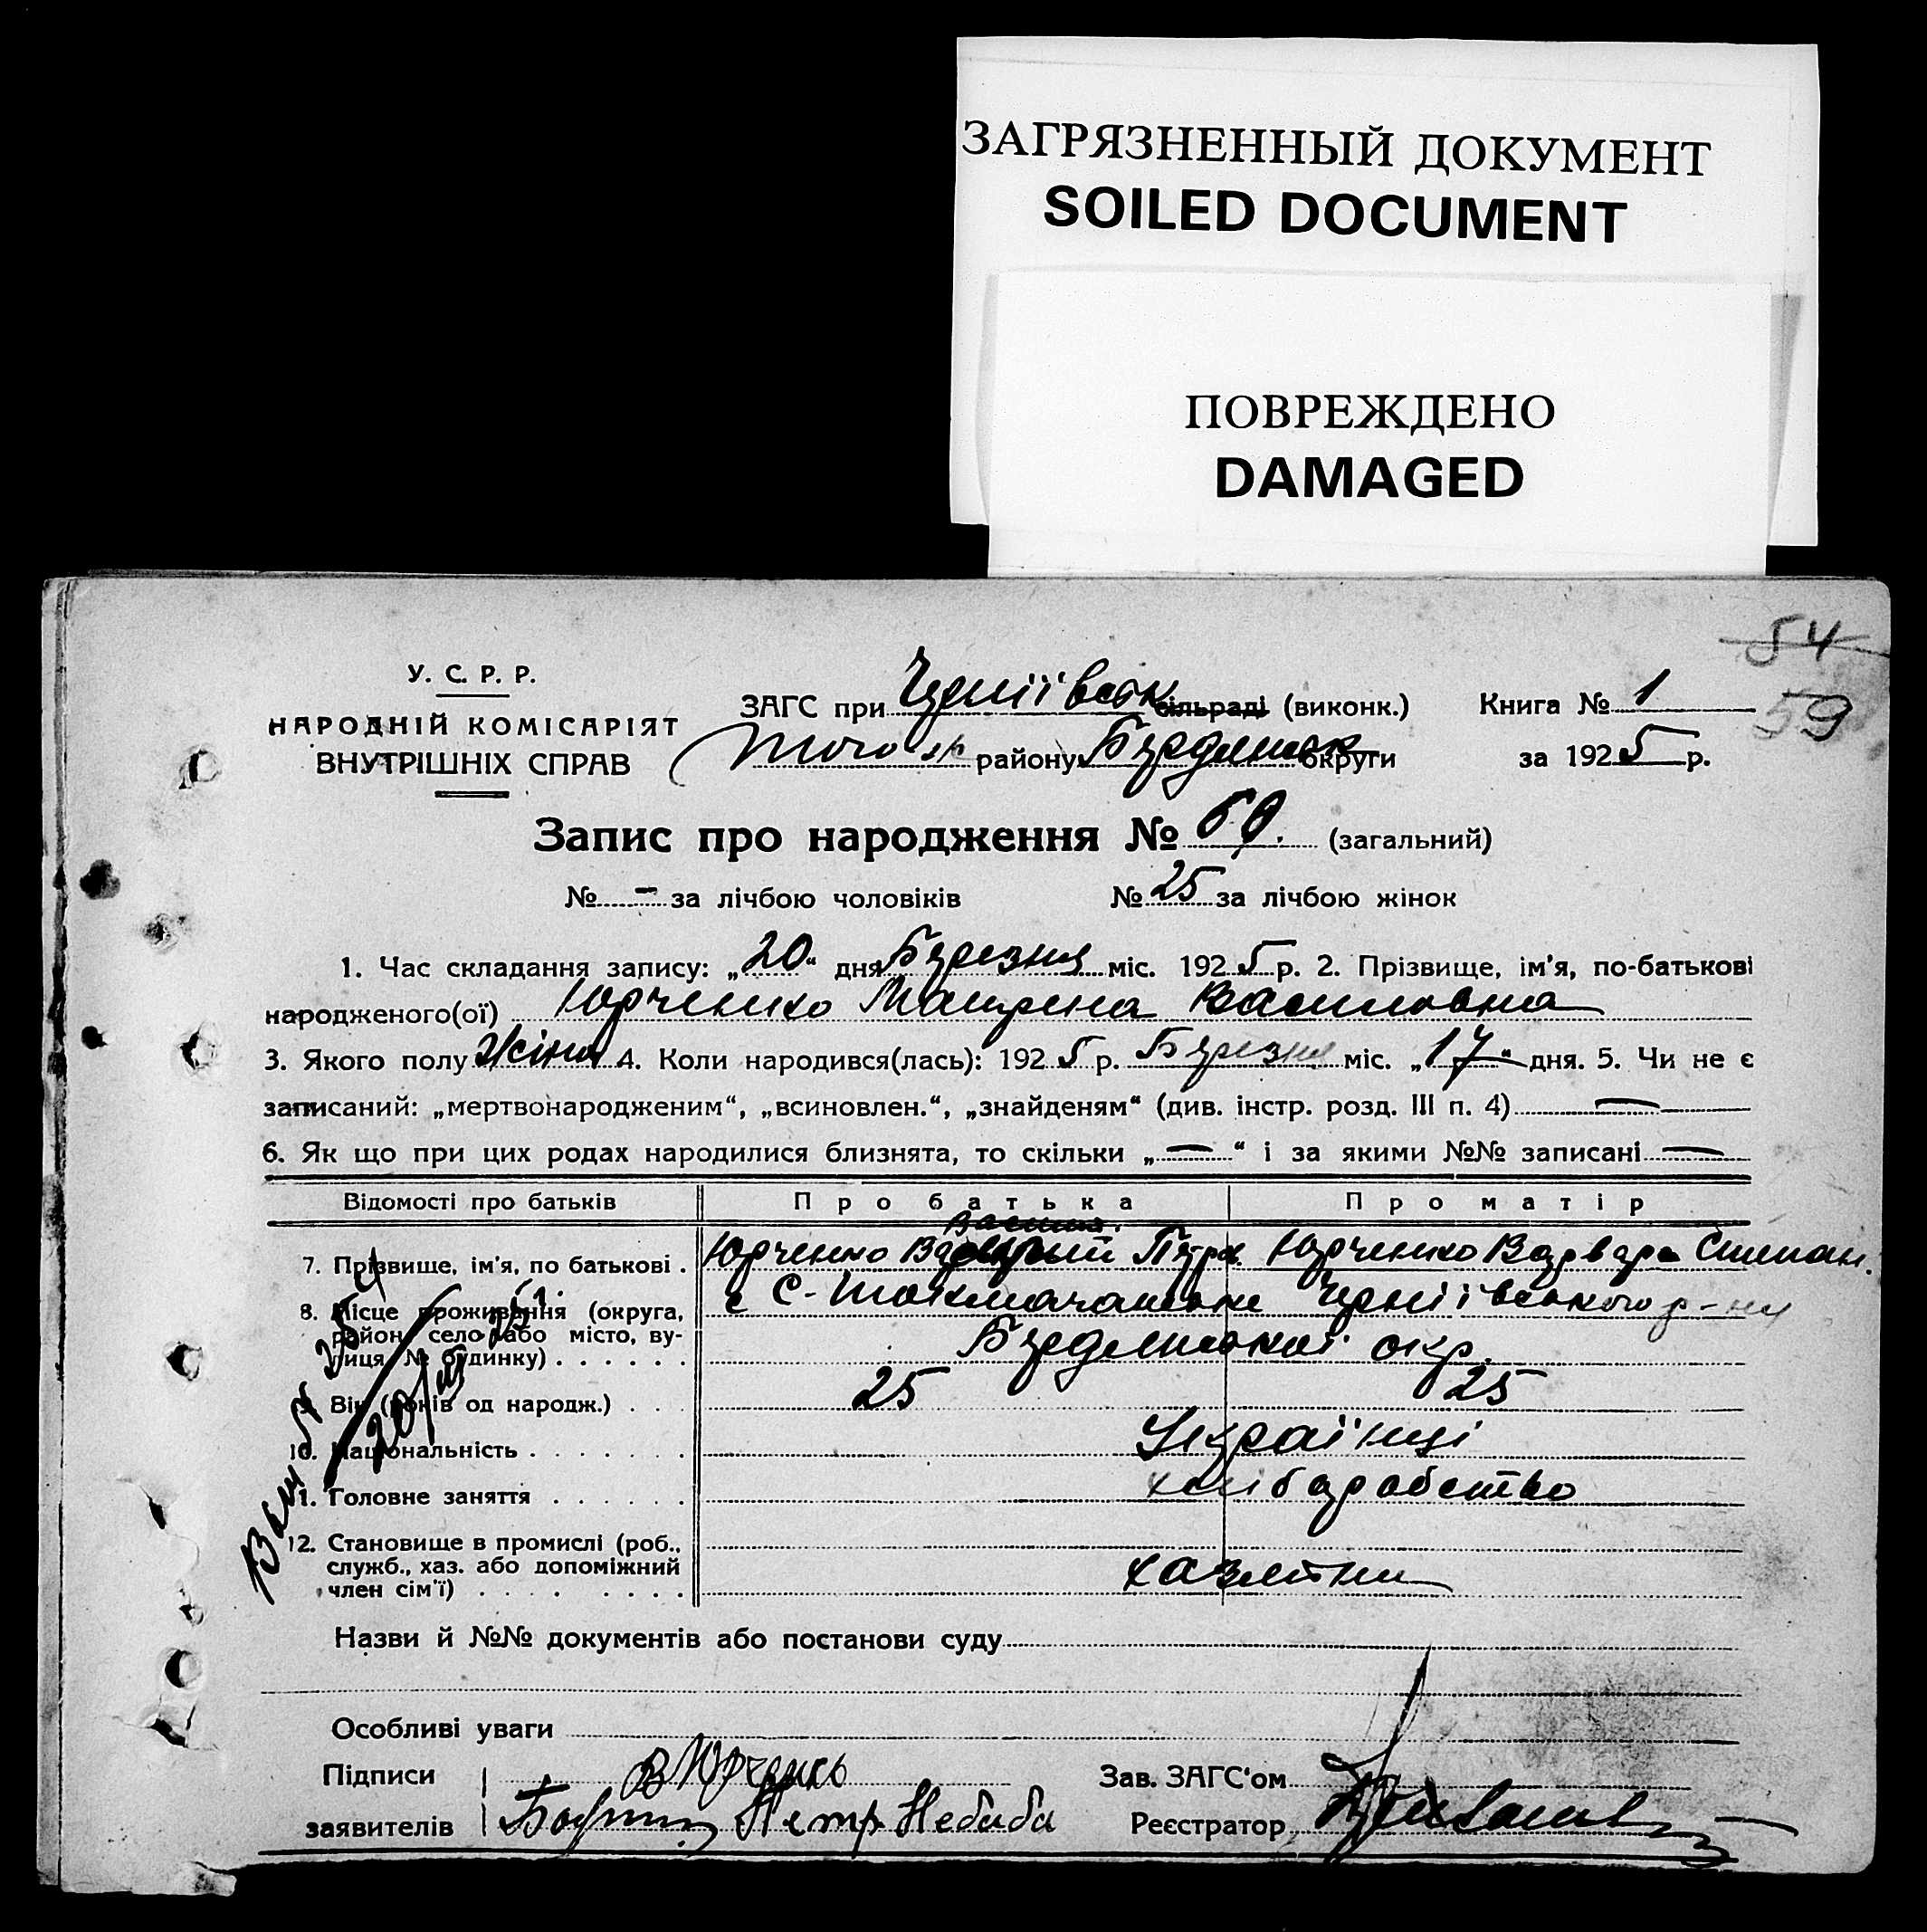 ЗАГРЯЗНЕННЫЙ ДОКУМЕНТ
SOILED DOCUMENT
ПОВРЕЖДЕНО
DAMAGED
54
59
У. С. Р. Р.
НАРОДНІЙ КОМІСАРІЯТ
ВНУТРІШНІХ СПРАВ
ЗАГС при Черніївськ сільраді (виконк.) Книга № 1
району Бердянськ округи за 1925 р.
Запис про народження № 59. (загальний)
№ - за лічбою чоловіків № 25 за лічбою жінок
1. Час складання запису: „20“ дня Березня міс. 1925 р. 2. Прізвище, ім'я, по-батькові
народженого(ої) Юрченко Матрена Василовна
3. Якого полу Жіноч 4. Коли народився(лась): 1925 р. Березня міс. „17“ дня. 5. Чи не є
записаний: „мертвонародженим“, „всиновлен.“, „знайденям“ (див. інстр. розд. III п. 4) —
6. Як що при цих родах народилися близнята, то скільки „—“ і за якими №№ записані —
Відомості про батьків Про батька Про матір
Васил.
7. Прізвище, ім'я, по батькові . Юрченко Петров. Юрченко Варвара Степан.
8. Місце проживання (округа, район, село або місто, вулиця, № будинку) . . . . . . с С-Токмачанське Черніївського р-ну
Бердянської окр.
9. Вік (років од народж.) . . . 25 25
10. Національність . . . . . . Українці
11. Головне заняття . . . . . . хліборобство
12. Становище в промислі (роб.,
служб., хаз. або допоміжний
член сім'ї) . . . . . . хазяїни
Назви й №№ документів або постанови суду
Особливі уваги
Підписи В Юрченко Зав. ЗАГС'ом
заявителів Петр Небаба Реєстратор